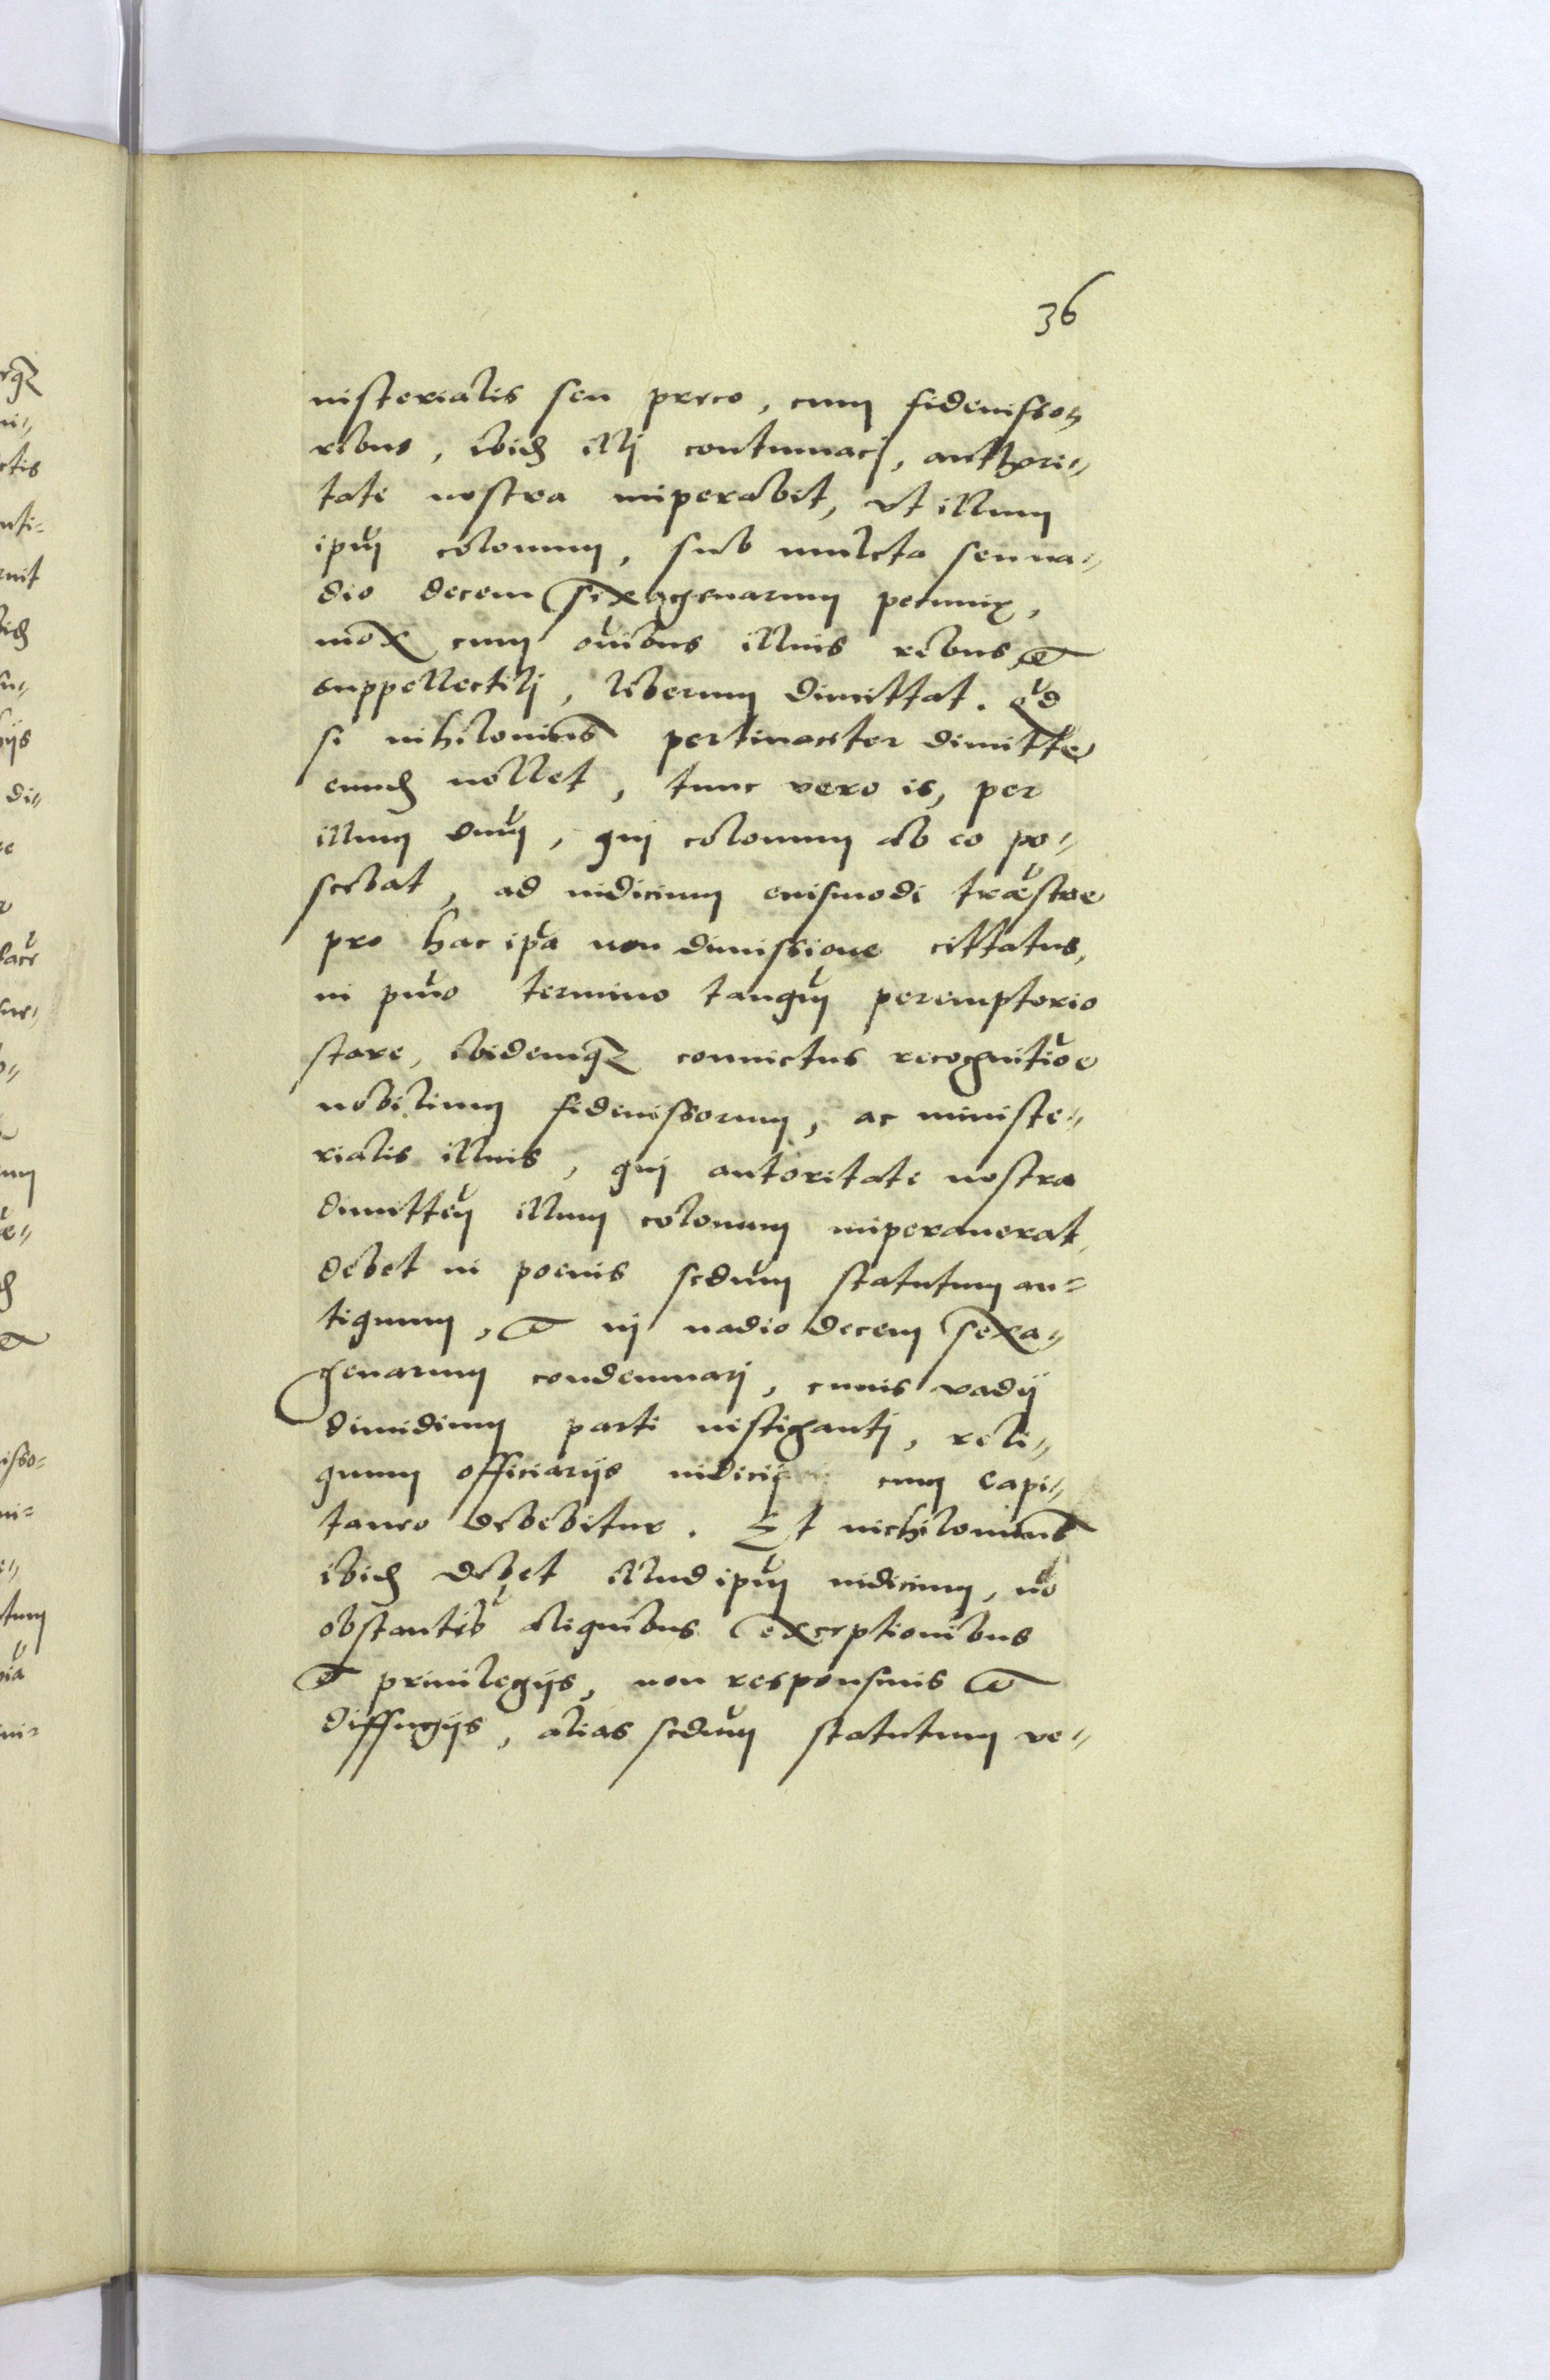 36
nisterialis seu preco, cum fideiusso-
ribus, ibid illj contumacj, authori-
tate nostra imperabit, vt illum
ipm colonum, sub mulcta seu va-
dio decem sexagenarum pecuniæ,
mox cum oibus illius rebus, et
suppellectilj, liberum dimittat. Qd
si nihilominus pertinaciter dimitte
eund nollet, tunc vero is, per
illum dnm, qui colonum ab eo po-
scebat, ad iudicium eiusmodi træstre
pro hac ipa non dimissione cittatus,
in pmo termino tanqm peremptorio
stare, ibidemqz conuictus recognitioe
nobilium fideiussorum, ac ministe-
rialis illius, qui autoritate nostra
dimittej illum colonum imperauerat,
debet in poenis scdum statutum an-
tiquum, et in vadio decem sexa-
genarum condemnarj, cuius vadij
dimidium parti instigantj, reli-
quum officiarijs iudicij cum capi-
taneo debebitur. Et nichilominus
ibid debet illud ipm iudicium, no
obstantib aliquibus exceptionibus
et priuilegijs, non responsiuis et
diffugijs, alias scdum statutum ve-